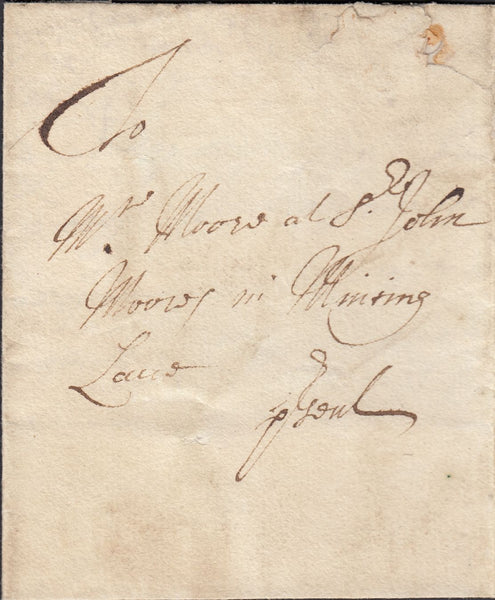 To
Mr Moore at Sr John
Moores in Minsing
Lane
psent